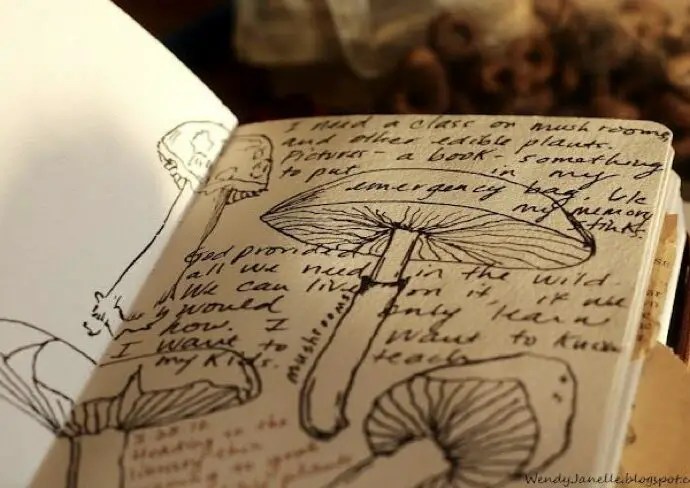 I need a class on mushrooms
and other edible plants.
Pictures - a book - something
to put in my
emergency bag. b/c
my memory
stinks.
God provided
all we need in the wild.
We can live on it, if we
would only learn
how. I want to know
I want to teach
my kids.
mushrooms
Heading to the
library this
WendyJanelle.blogspot.c